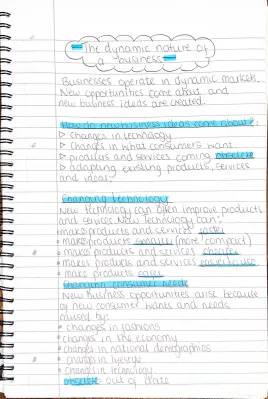 The dynamic nature of
a business
Businesses operate in dynamic markets.
New opportunities come about and
new business ideas are created.
How do new business ideas come about?
▷ changes in technology
▷ changes in what consumers want
▷ products and services coming obsolete
▷ adapting existing products, services
and ideas.
Changing technology
New technology can often improve products
and services. New technology can:
• make products and services faster
• make products smaller (more compact)
• make products and services cheaper
• makes products and services easier to use
• make products safer
Changing consumer needs
New business opportunities arise because
of new consumer wants and needs
caused by:
• changes in fashions
• changes in the economy
• changes in national demographics
• changes in lifestyle
• changes in technology
obsolete - out of date